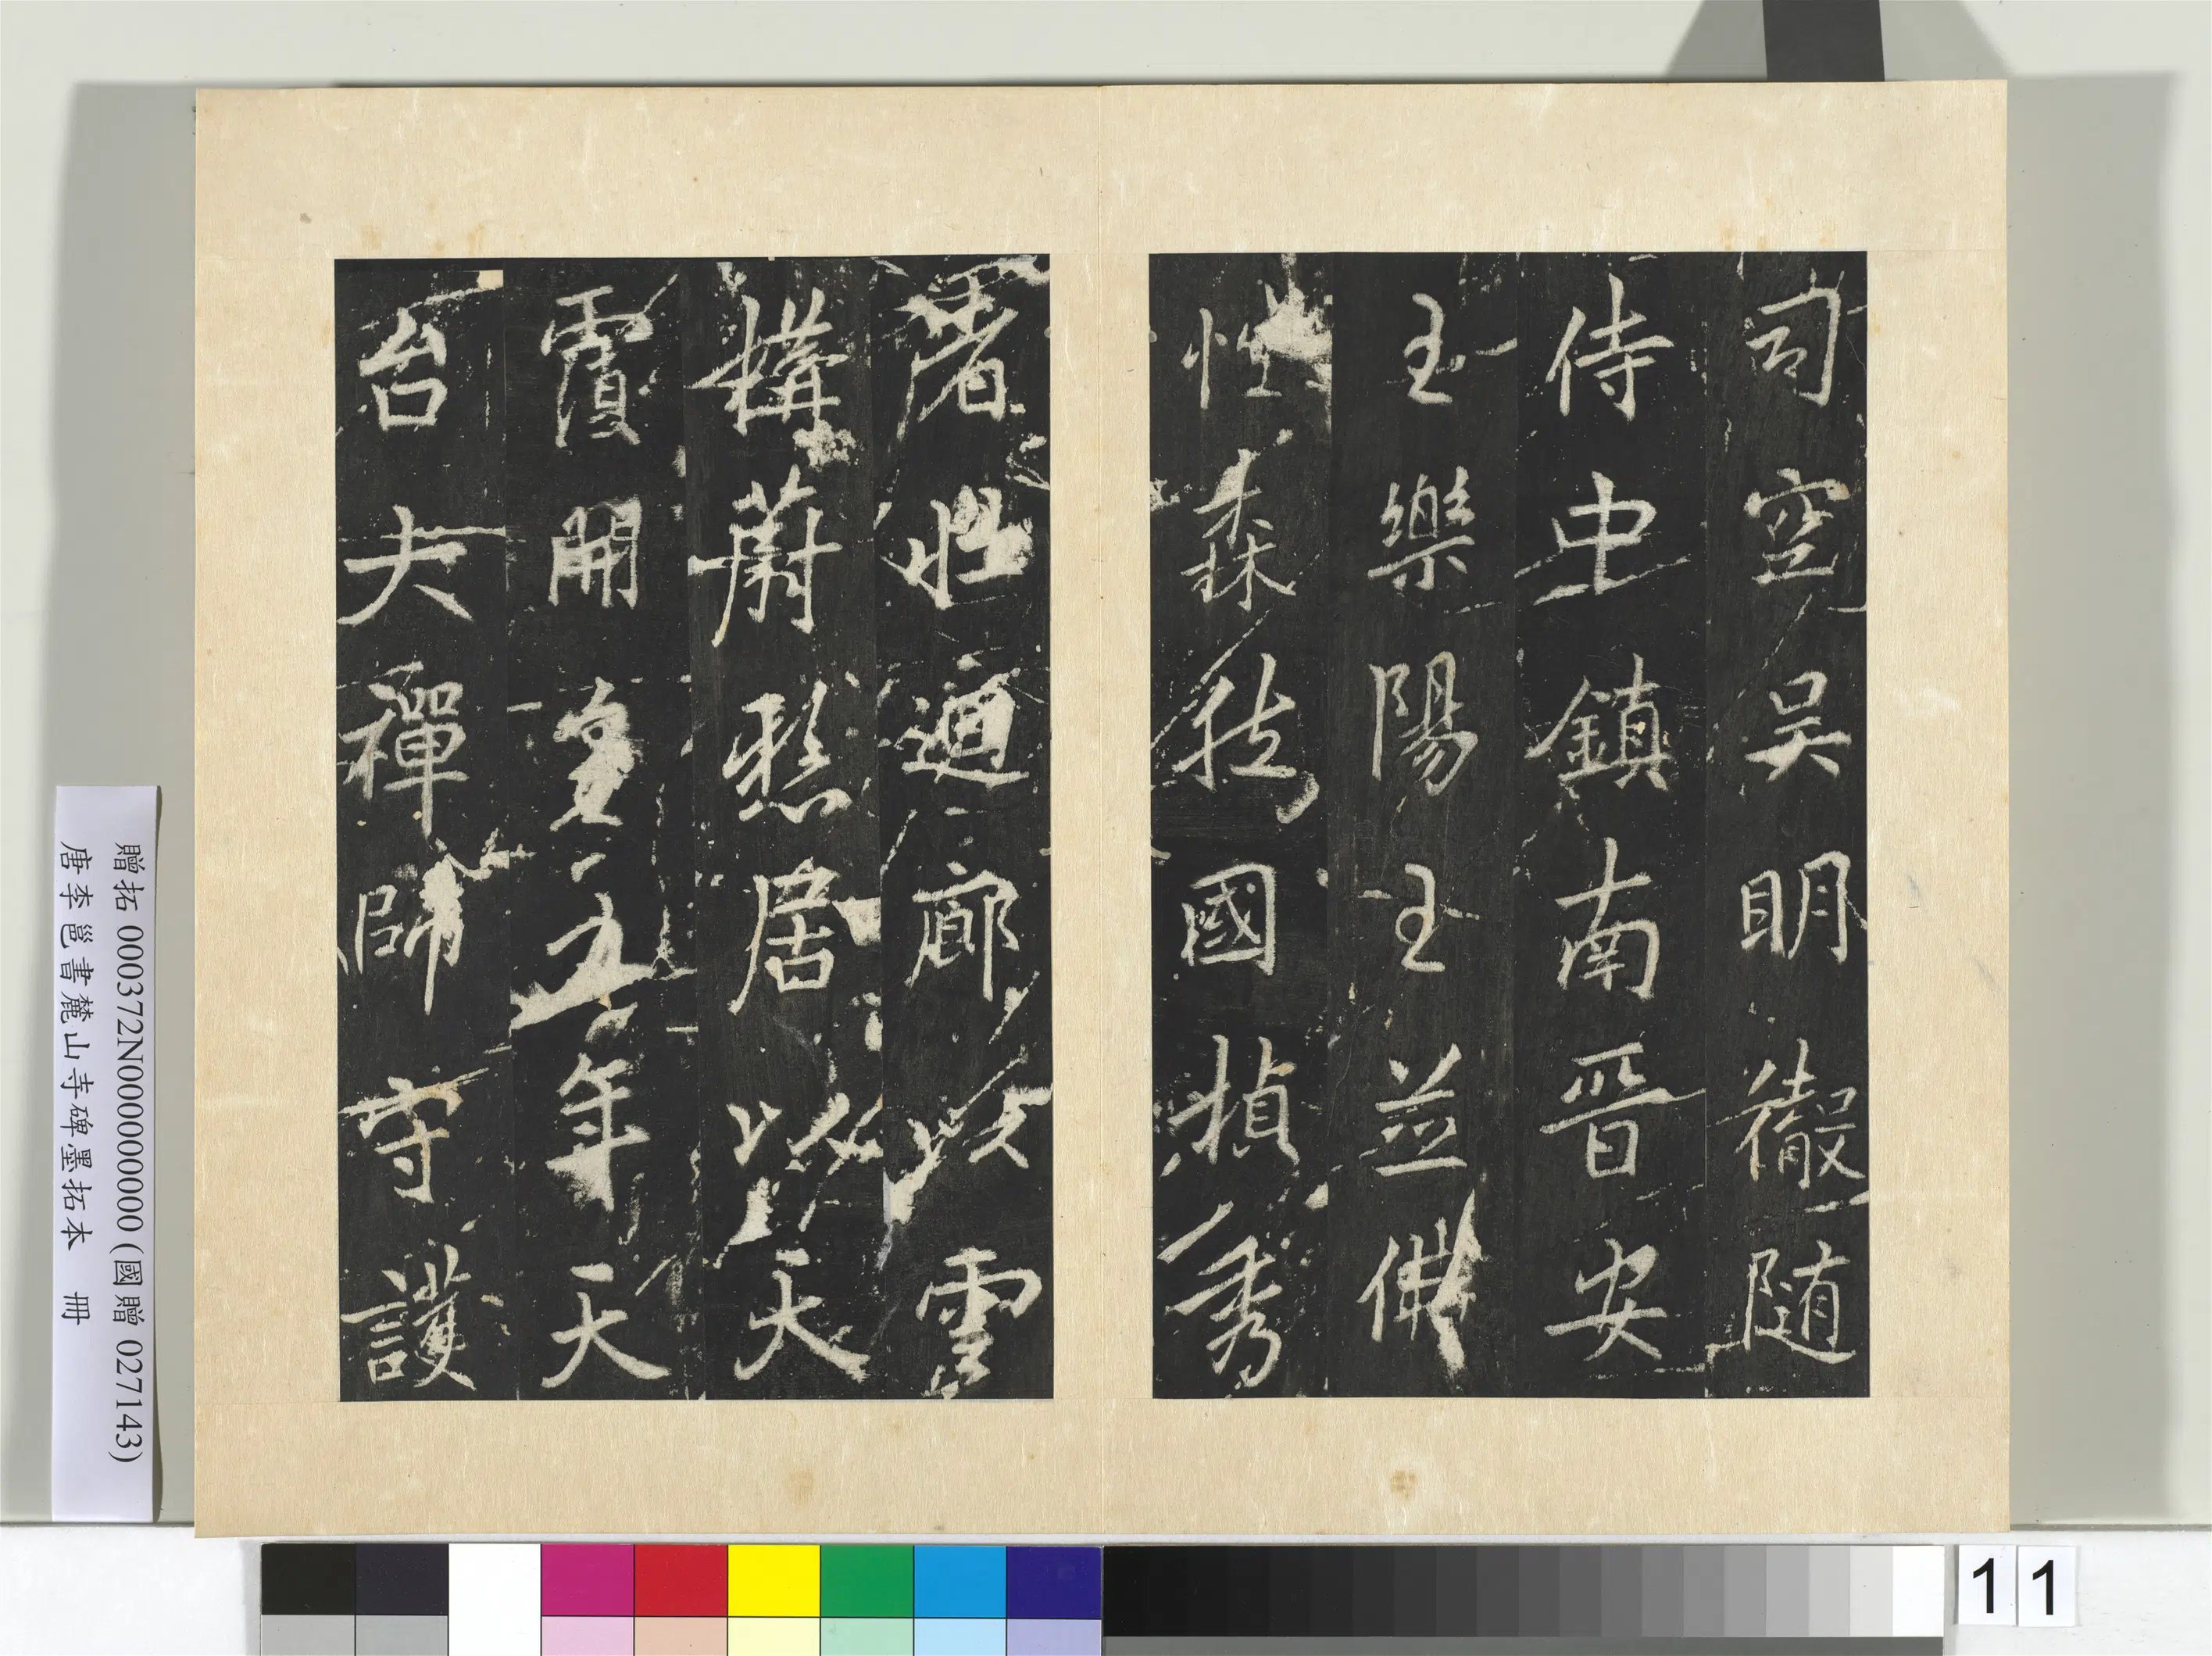 司空吳明徹隨
侍中鎮南晉安
王樂陽王並佛
性森國楨秀
者壯廊以雲
構蔚懸居以天
霞開皇年天
台大禪師守護
贈拓 000372N000000000 (國贈 027143)
唐李邕書麓山寺碑墨拓本 冊
1 1